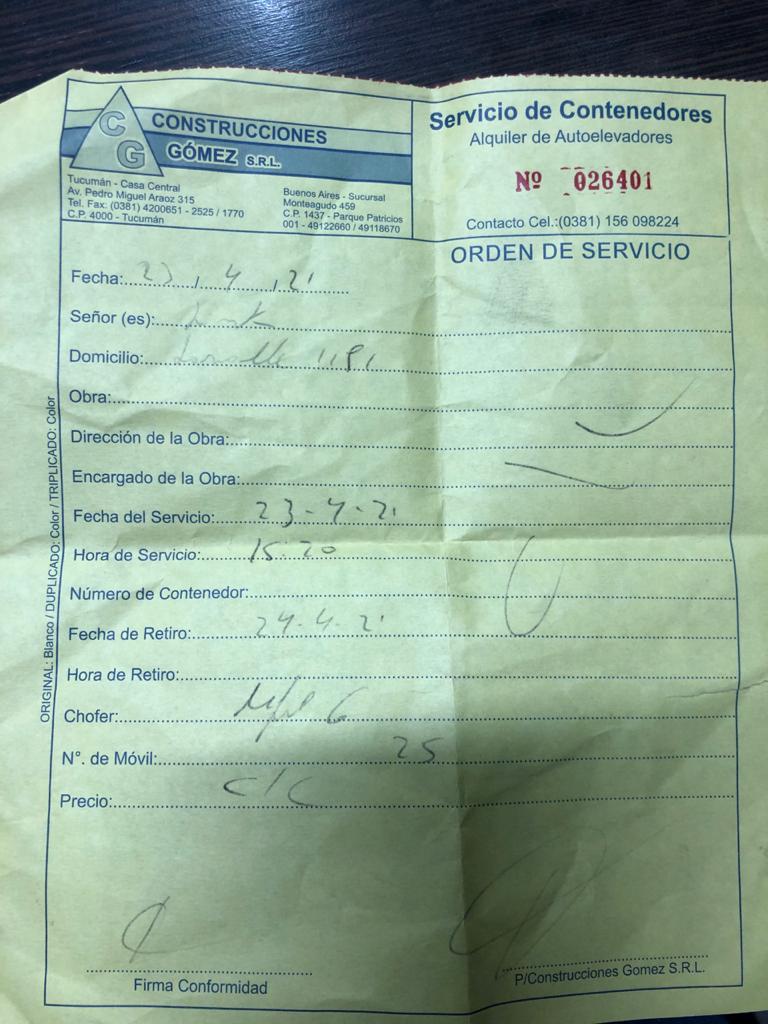 CG
CONSTRUCCIONES
GÓMEZ S.R.L.
Tucumán - Casa Central
Av. Pedro Miguel Araoz 315
Tel. Fax: (0381) 4200651 - 2525 / 1770
C.P. 4000 - Tucumán
Buenos Aires - Sucursal
Monteagudo 459
C.P. 1437 - Parque Patricios
001 - 49122660 / 49118670
Servicio de Contenedores
Alquiler de Autoelevadores
Nº 026401
Contacto Cel.:(0381) 156 098224
ORDEN DE SERVICIO
Fecha: 23 / 4 / 21
Señor (es):
Domicilio:
Obra:
Dirección de la Obra:
Encargado de la Obra:
Fecha del Servicio: 23-4-21
Hora de Servicio: 15:20
Número de Contenedor:
Fecha de Retiro: 24-4-21
Hora de Retiro:
Chofer:
N°. de Móvil: 25
Precio: c/c
Firma Conformidad
P/Construcciones Gomez S.R.L.
ORIGINAL: Blanco / DUPLICADO: Color / TRIPLICADO: Color